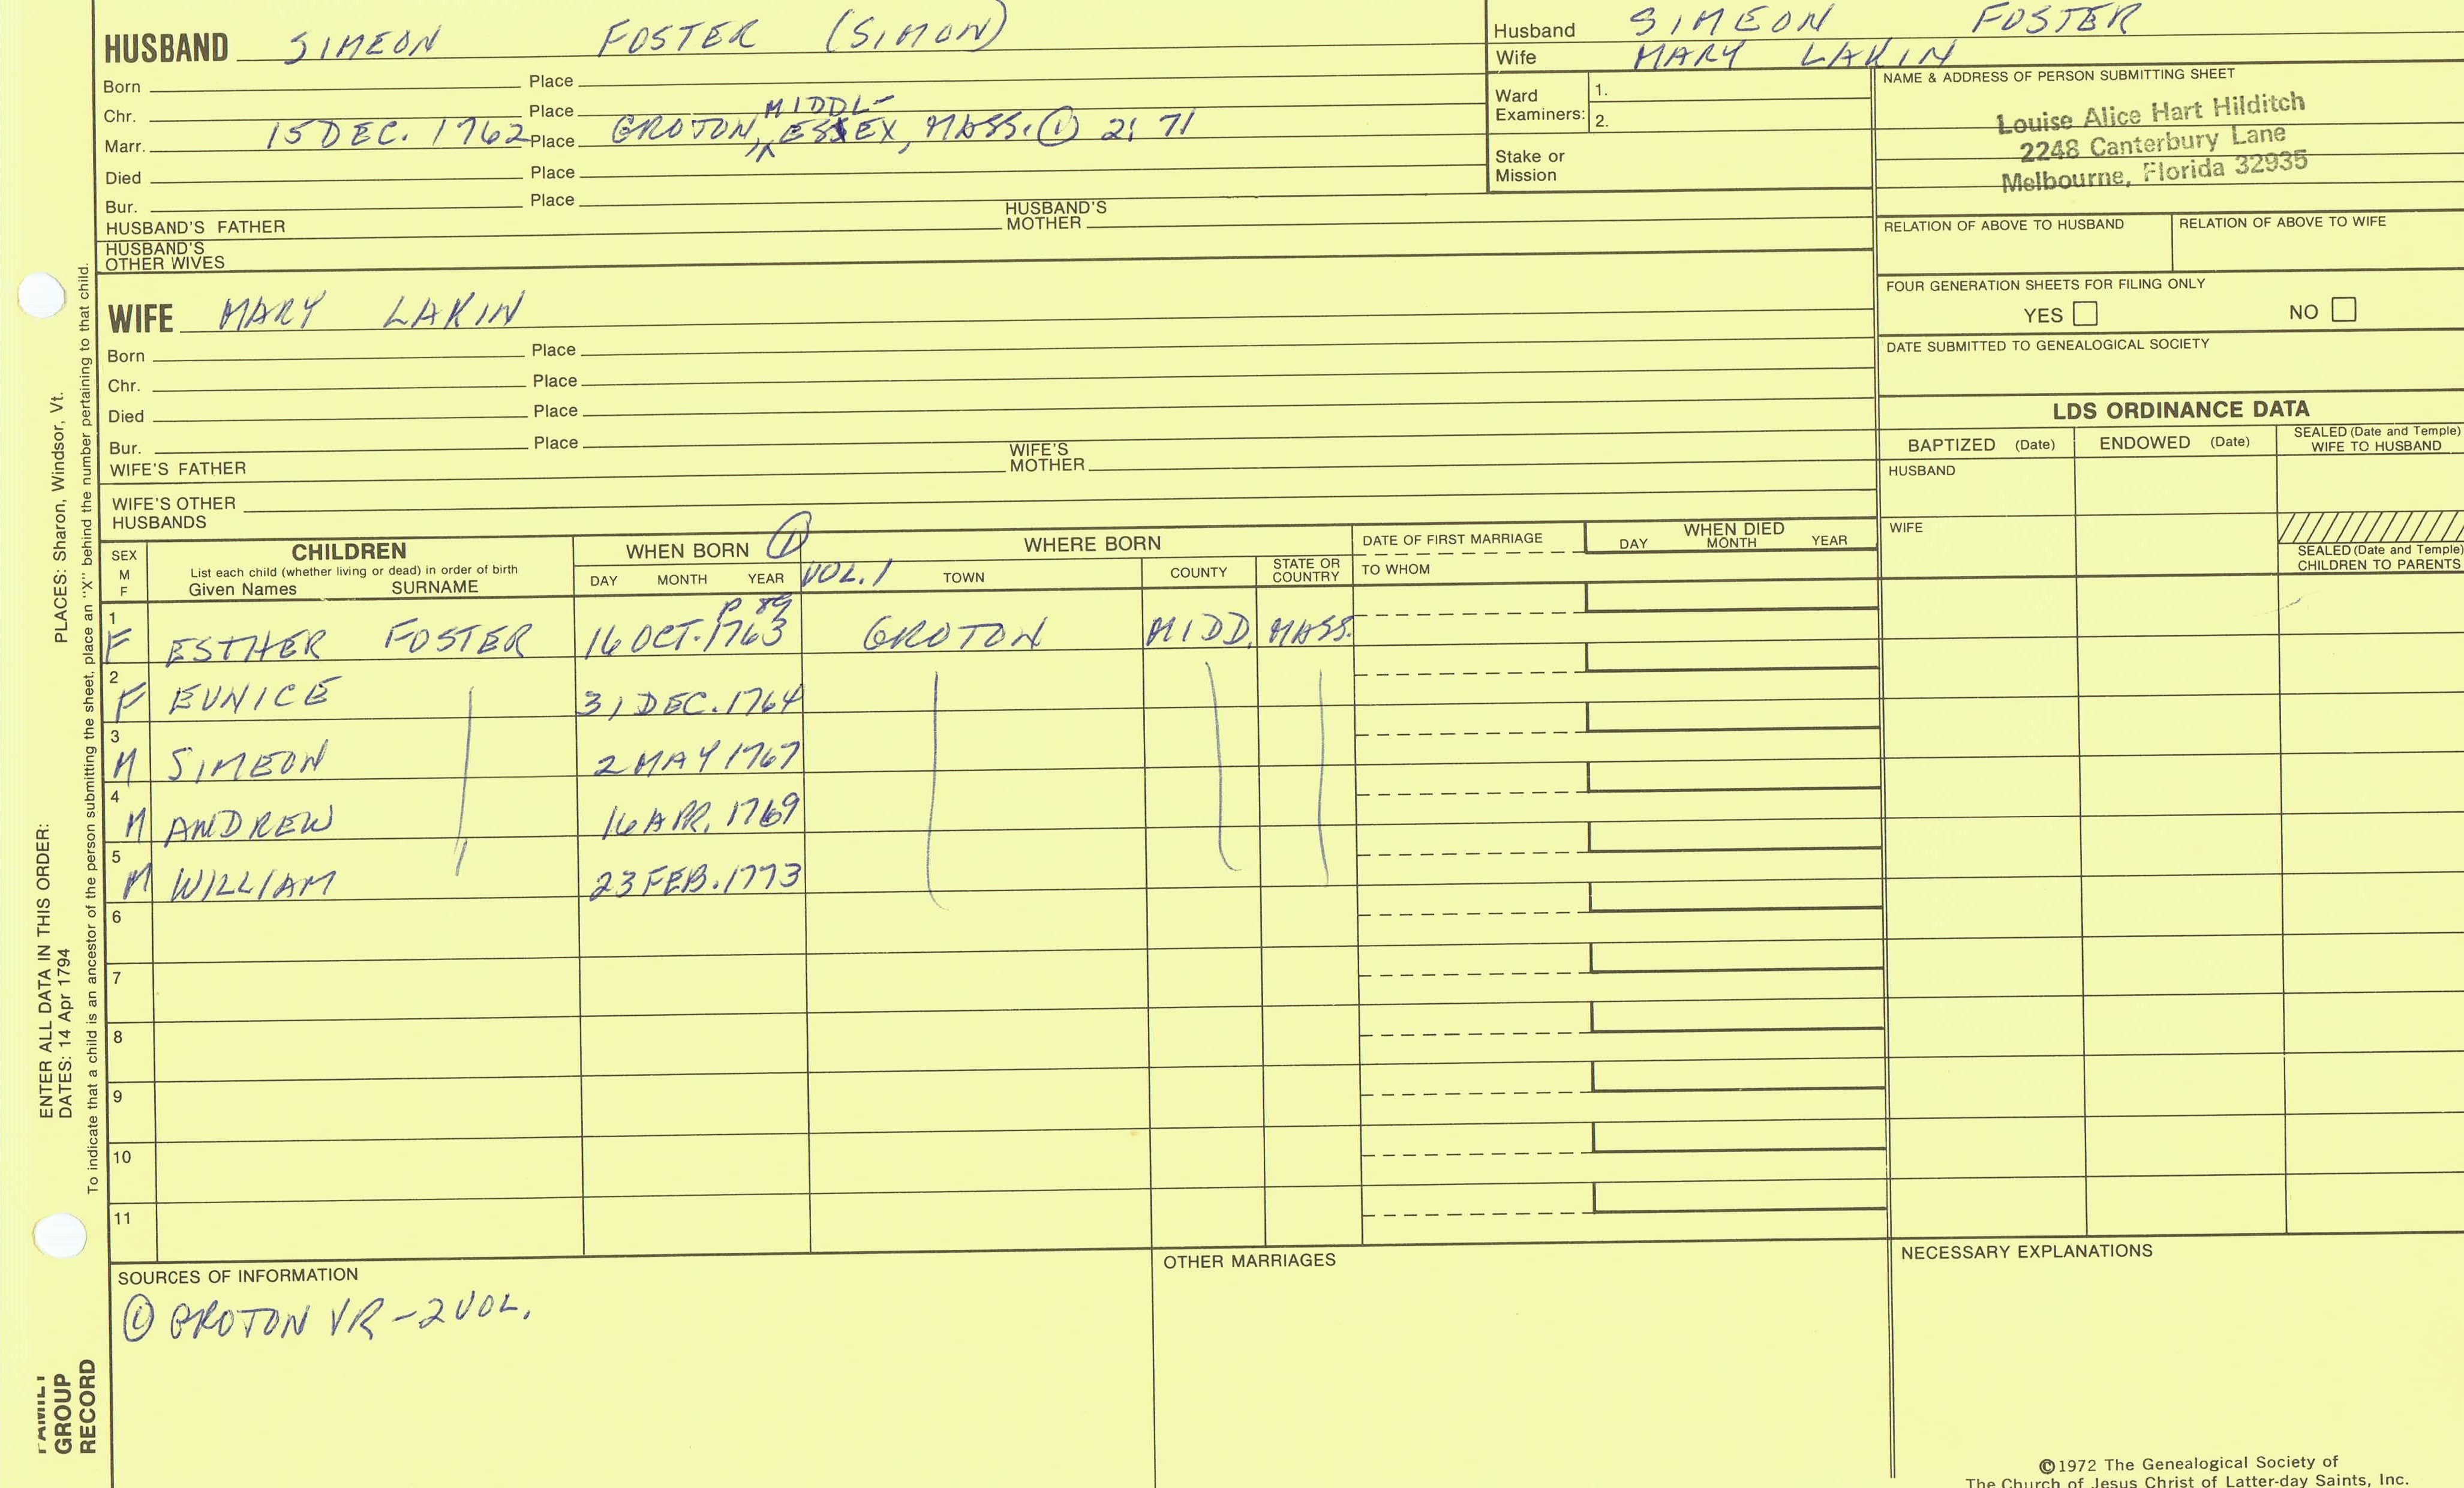 HUSBAND SIMEON FOSTER (SIMON)
Born Place
Chr. Place
Marr. 15 DEC. 1762 Place GROTON, MIDDL- ESSEX, MASS. ① 2: 71
Died Place
Bur. Place
HUSBAND'S FATHER HUSBAND'S MOTHER
HUSBAND'S OTHER WIVES
Husband SIMEON FOSTER
Wife MARY LAKIN
Ward Examiners: 1.
2.
Stake or Mission
NAME & ADDRESS OF PERSON SUBMITTING SHEET
Louise Alice Hart Hilditch
2248 Canterbury Lane
Melbourne, Florida 32935
RELATION OF ABOVE TO HUSBAND RELATION OF ABOVE TO WIFE
FOUR GENERATION SHEETS FOR FILING ONLY
YES NO
DATE SUBMITTED TO GENEALOGICAL SOCIETY
WIFE MARY LAKIN
Born Place
Chr. Place
Died Place
Bur. Place
WIFE'S FATHER WIFE'S MOTHER
WIFE'S OTHER HUSBANDS
LDS ORDINANCE DATA
BAPTIZED (Date) ENDOWED (Date) SEALED (Date and Temple) WIFE TO HUSBAND
HUSBAND
WIFE
SEALED (Date and Temple) CHILDREN TO PARENTS
SEX M F
CHILDREN
List each child (whether living or dead) in order of birth
Given Names SURNAME
WHEN BORN ①
DAY MONTH YEAR
VOL. 1
WHERE BORN
TOWN COUNTY STATE OR COUNTRY
DATE OF FIRST MARRIAGE
TO WHOM
WHEN DIED
DAY MONTH YEAR
P 89
1 F ESTHER FOSTER 16 OCT. 1763 GROTON MIDD. MASS.
2 F EUNICE 31 DEC. 1764
3 M SIMEON 2 MAY 1767
4 M ANDREW 16 APR. 1769
5 M WILLIAM 23 FEB. 1773
6
7
8
9
10
11
SOURCES OF INFORMATION
① GROTON VR - 2 VOL.
OTHER MARRIAGES
NECESSARY EXPLANATIONS
©1972 The Genealogical Society of
The Church of Jesus Christ of Latter-day Saints, Inc.
PLACES: Sharon, Windsor, Vt.
ENTER ALL DATA IN THIS ORDER:
DATES: 14 Apr 1794
To indicate that a child is an ancestor of the person submitting the sheet, place an "X" behind the number pertaining to that child.
FAMILY
GROUP
RECORD